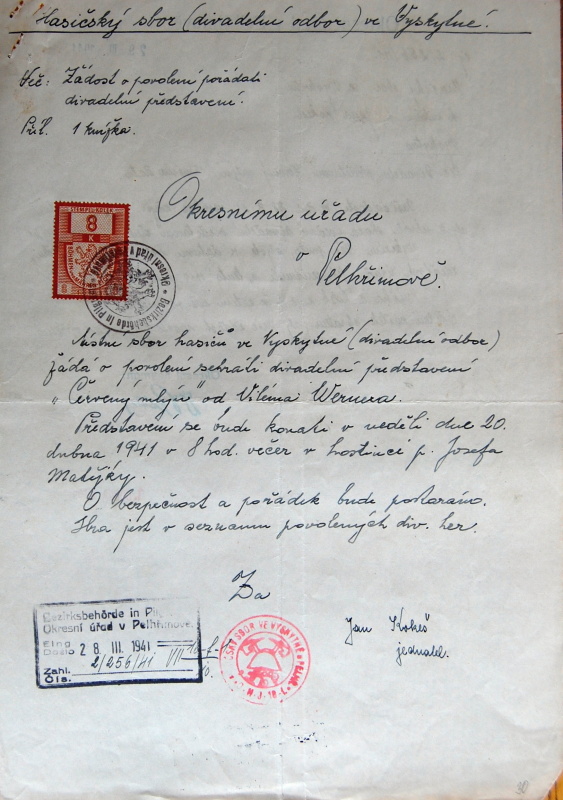 Hasičský sbor (divadelní odbor) ve Vyskytné.
Věc: Žádost o povolení pořádati
divadelní představení.
Příl. 1 knížka.
STEMPEL KOLEK
8
K
Okresnímu úřadu
v Pelhřimově.
Bezirksbehörde in Pilgrams
Okresní úřad v Pelhřimově
Místní sbor hasičů ve Vyskytné (divadelní odbor)
žádá o povolení sehráti divadelní představení
„Červený mlýn" od Viléma Wernera.
Představení se bude konati v neděli dne 20.
dubna 1941 v 8 hod. večer v hostinci p. Josefa
Matějky.
O bezpečnost a pořádek bude postaráno.
Hra jest v seznamu povolených div. her.
Za
Bezirksbehörde in
Okresní úřad v Pelhřimově.
Eing
Došlo 28. III. 1941
Zahl. 2/256/41 VII
Čís.
SBOR VE VYSKYTNÉ
Jan Kokeš
jednatel.